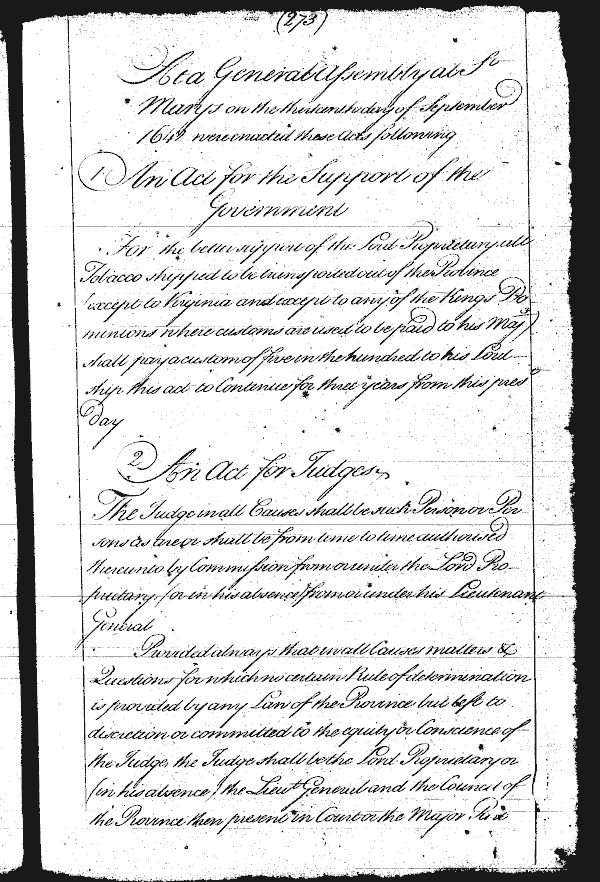 (273)
At a General Assembly at St
Marys on the thirteenth day of September
1642 were enacted these Acts following
1 An Act for the Support of the
Government
For the better support of the Lord Proprietary all
Tobacco shipped to be transported out of the Province
(except to Virginia and except to any of the Kings Do
minions where customs are used to be paid to his Maj
shall pay a custom of five in the hundred to his Lord
ship this act to Continue for three years from this pres
day
2 An Act for Judges
The Judge in all Causes shall be such Person or Per
sons as are or shall be from time to time authorised
thereunto by Commission from or under the Lord Pro
prietary (or in his absence) from or under his Lieutenant
General
Provided always that in all Causes matters &
Questions for which no certain Rule of determination
is provided by any Law of the Province but left to
discretion or committed to the equity or Conscience of
the Judge, the Judge shall be the Lord Proprietary or
(in his absence) the Lieut General and the Council of
the Province then present in Court or the Major Part